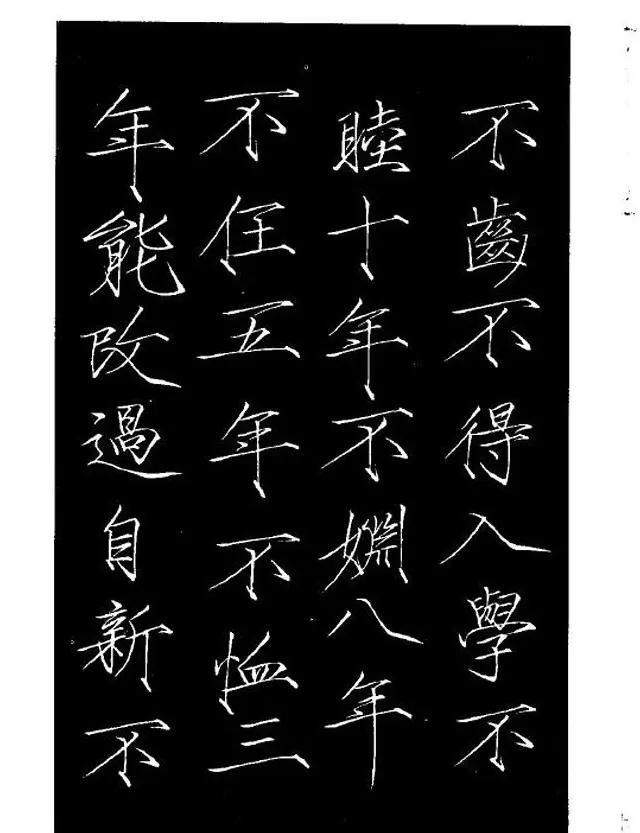 不齒不得入學不
睦十年不婣八年
不任五年不恤三
年能改過自新不